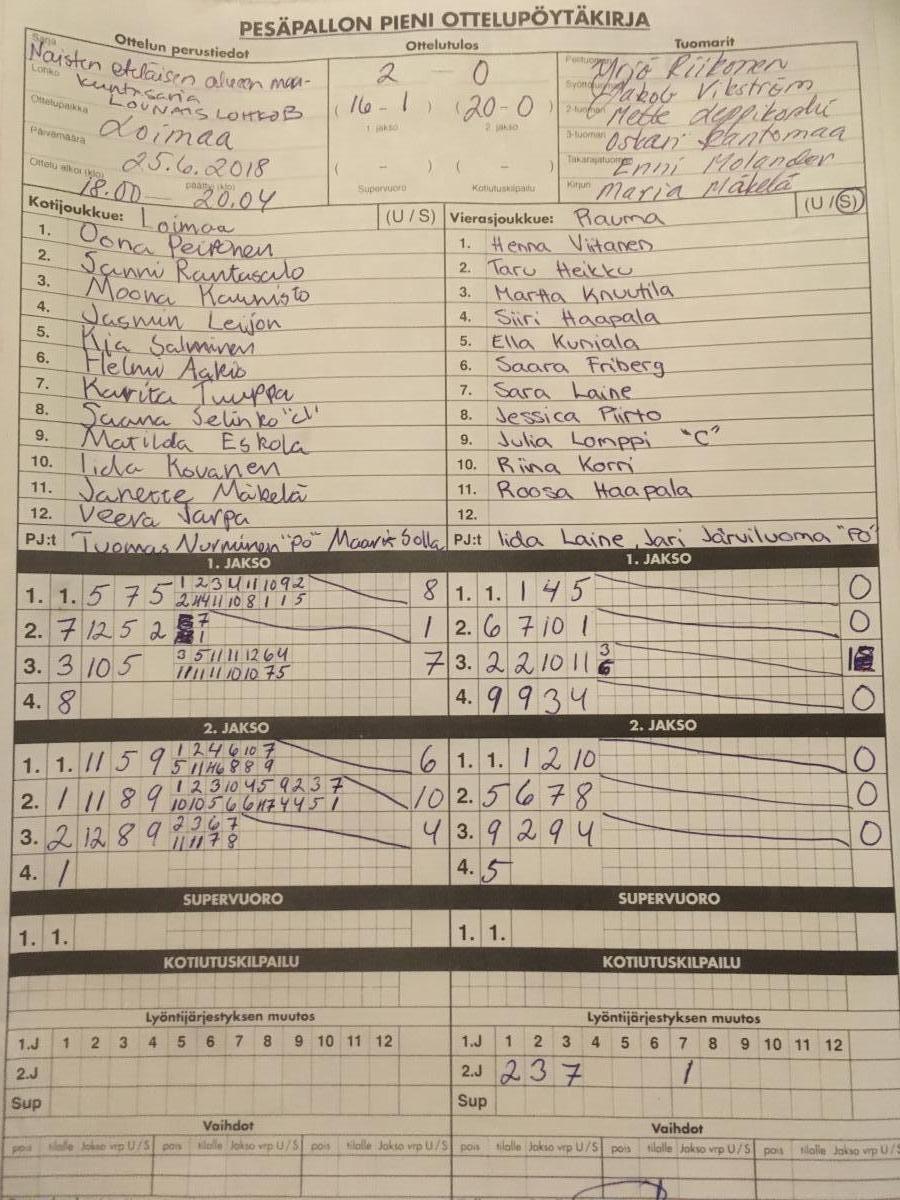 PESÄPALLON PIENI OTTELUPÖYTÄKIRJA
Ottelun perustiedot Ottelutulos Tuomarit
Sarja Naisten eteläisen alueen maa-
kuntasarja
Lohko LOUNAIS LOHKO B
Ottelupaikka Loimaa
Päivämäärä 25.6.2018
Ottelu alkoi (klo) 18.00 päättyi (klo) 20.04
2 - 0
( 16 - 1 ) ( 20 - 0 )
1. jakso 2. jakso
( - ) ( - )
Supervuoro Kotiutuskilpailu
Yrjö Riikonen
Jakob Vikström
2-tuomari Mette Leppikoski
3-tuomari Oskari Rantomaa
Takarajatuomari Enni Molander
Kirjuri Maria Mäkelä
Kotijoukkue: Loimaa (U / S) Vierasjoukkue: Rauma (U / S)
1. Oona Peiponen 1. Henna Viitanen
2. Sanni Rantasalo 2. Taru Heikku
3. Moona Kaunisto 3. Martta Knuutila
4. Jasmin Leijon 4. Siiri Haapala
5. Kia Salminen 5. Ella Kuniala
6. Helmi Aakio 6. Saara Friberg
7. Karita Tuuppa 7. Sara Laine
8. Saana Selinko "c" 8. Jessica Piirto
9. Matilda Eskola 9. Julia Lomppi "C"
10. Iida Kovanen 10. Riina Korri
11. Janette Mäkelä 11. Roosa Haapala
12. Veera Jarpa 12.
PJ:t Tuomas Nurminen "PÖ" Maarit Solla PJ:t Iida Laine, Jari Järviluoma "PÖ"
1. JAKSO 1. JAKSO
1. 1. 5 7 5 1 2 3 4 11 10 9 2 8 1. 1. 1 4 5 0
2 4 4 11 10 8 1 1 5
2. 7 12 5 2 7 1 2. 6 7 10 1 0
1
3. 3 10 5 3 5 11 11 12 6 4 7 3. 2 2 10 11 3 1
1 11 11 10 10 7 5 6
4. 8 4. 9 9 3 4 0
2. JAKSO 2. JAKSO
1. 1. 11 5 9 1 2 4 6 10 7 6 1. 1. 1 2 10 0
5 11 4 6 8 8 9
2. 1 11 8 9 1 2 3 10 4 5 9 2 3 7 10 2. 5 6 7 8 0
10 10 5 6 6 11 7 4 4 5 1
3. 2 12 8 9 2 3 6 7 4 3. 9 2 9 4 0
11 11 7 8
4. 1 4. 5
SUPERVUORO SUPERVUORO
1. 1. 1. 1.
KOTIUTUSKILPAILU KOTIUTUSKILPAILU
Lyöntijärjestyksen muutos Lyöntijärjestyksen muutos
1.J 1 2 3 4 5 6 7 8 9 10 11 12 1.J 1 2 3 4 5 6 7 8 9 10 11 12
2.J 2.J 2 3 7 1
Sup Sup
Vaihdot Vaihdot
pois tilalle Jakso vrp U / S pois tilalle Jakso vrp U / S pois tilalle Jakso vrp U / S pois tilalle Jakso vrp U / S pois tilalle Jakso vrp U / S pois tilalle Jakso vrp U / S